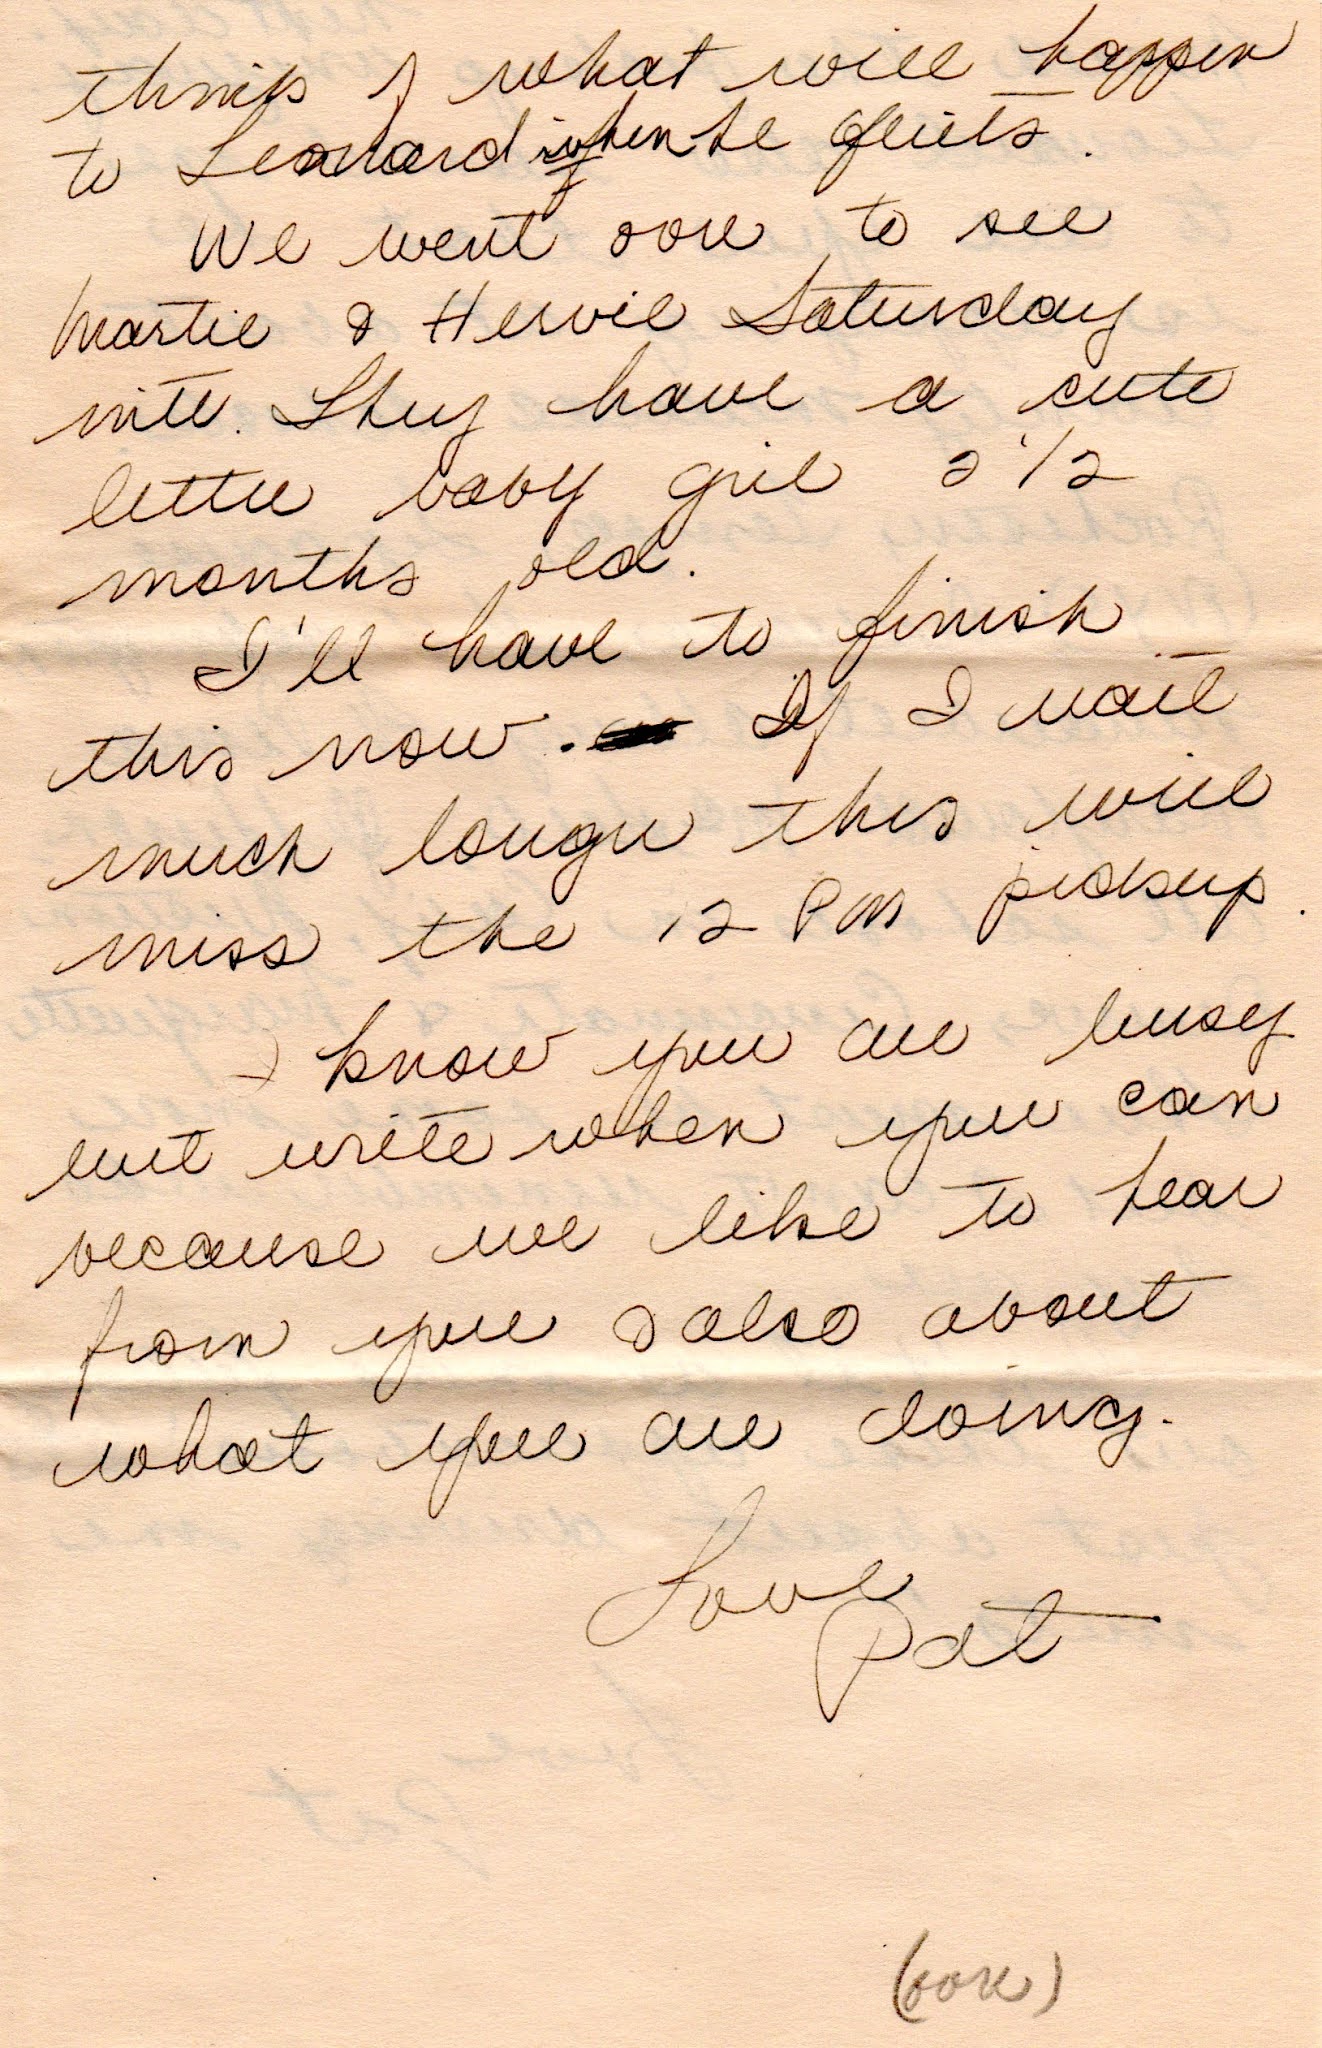 think of what will happen
to Leonard when he quits.
We went over to see
Martie & Hervie Saturday
nite. They have a cute
little baby girl 2 1/2
months old.
I'll have to finish
this now. If I wait
much longer this will
miss the 12 PM pickup.
I know you are busy
but write when you can
because we like to hear
from you & also about
what you are doing.
Love
Pat
(over)